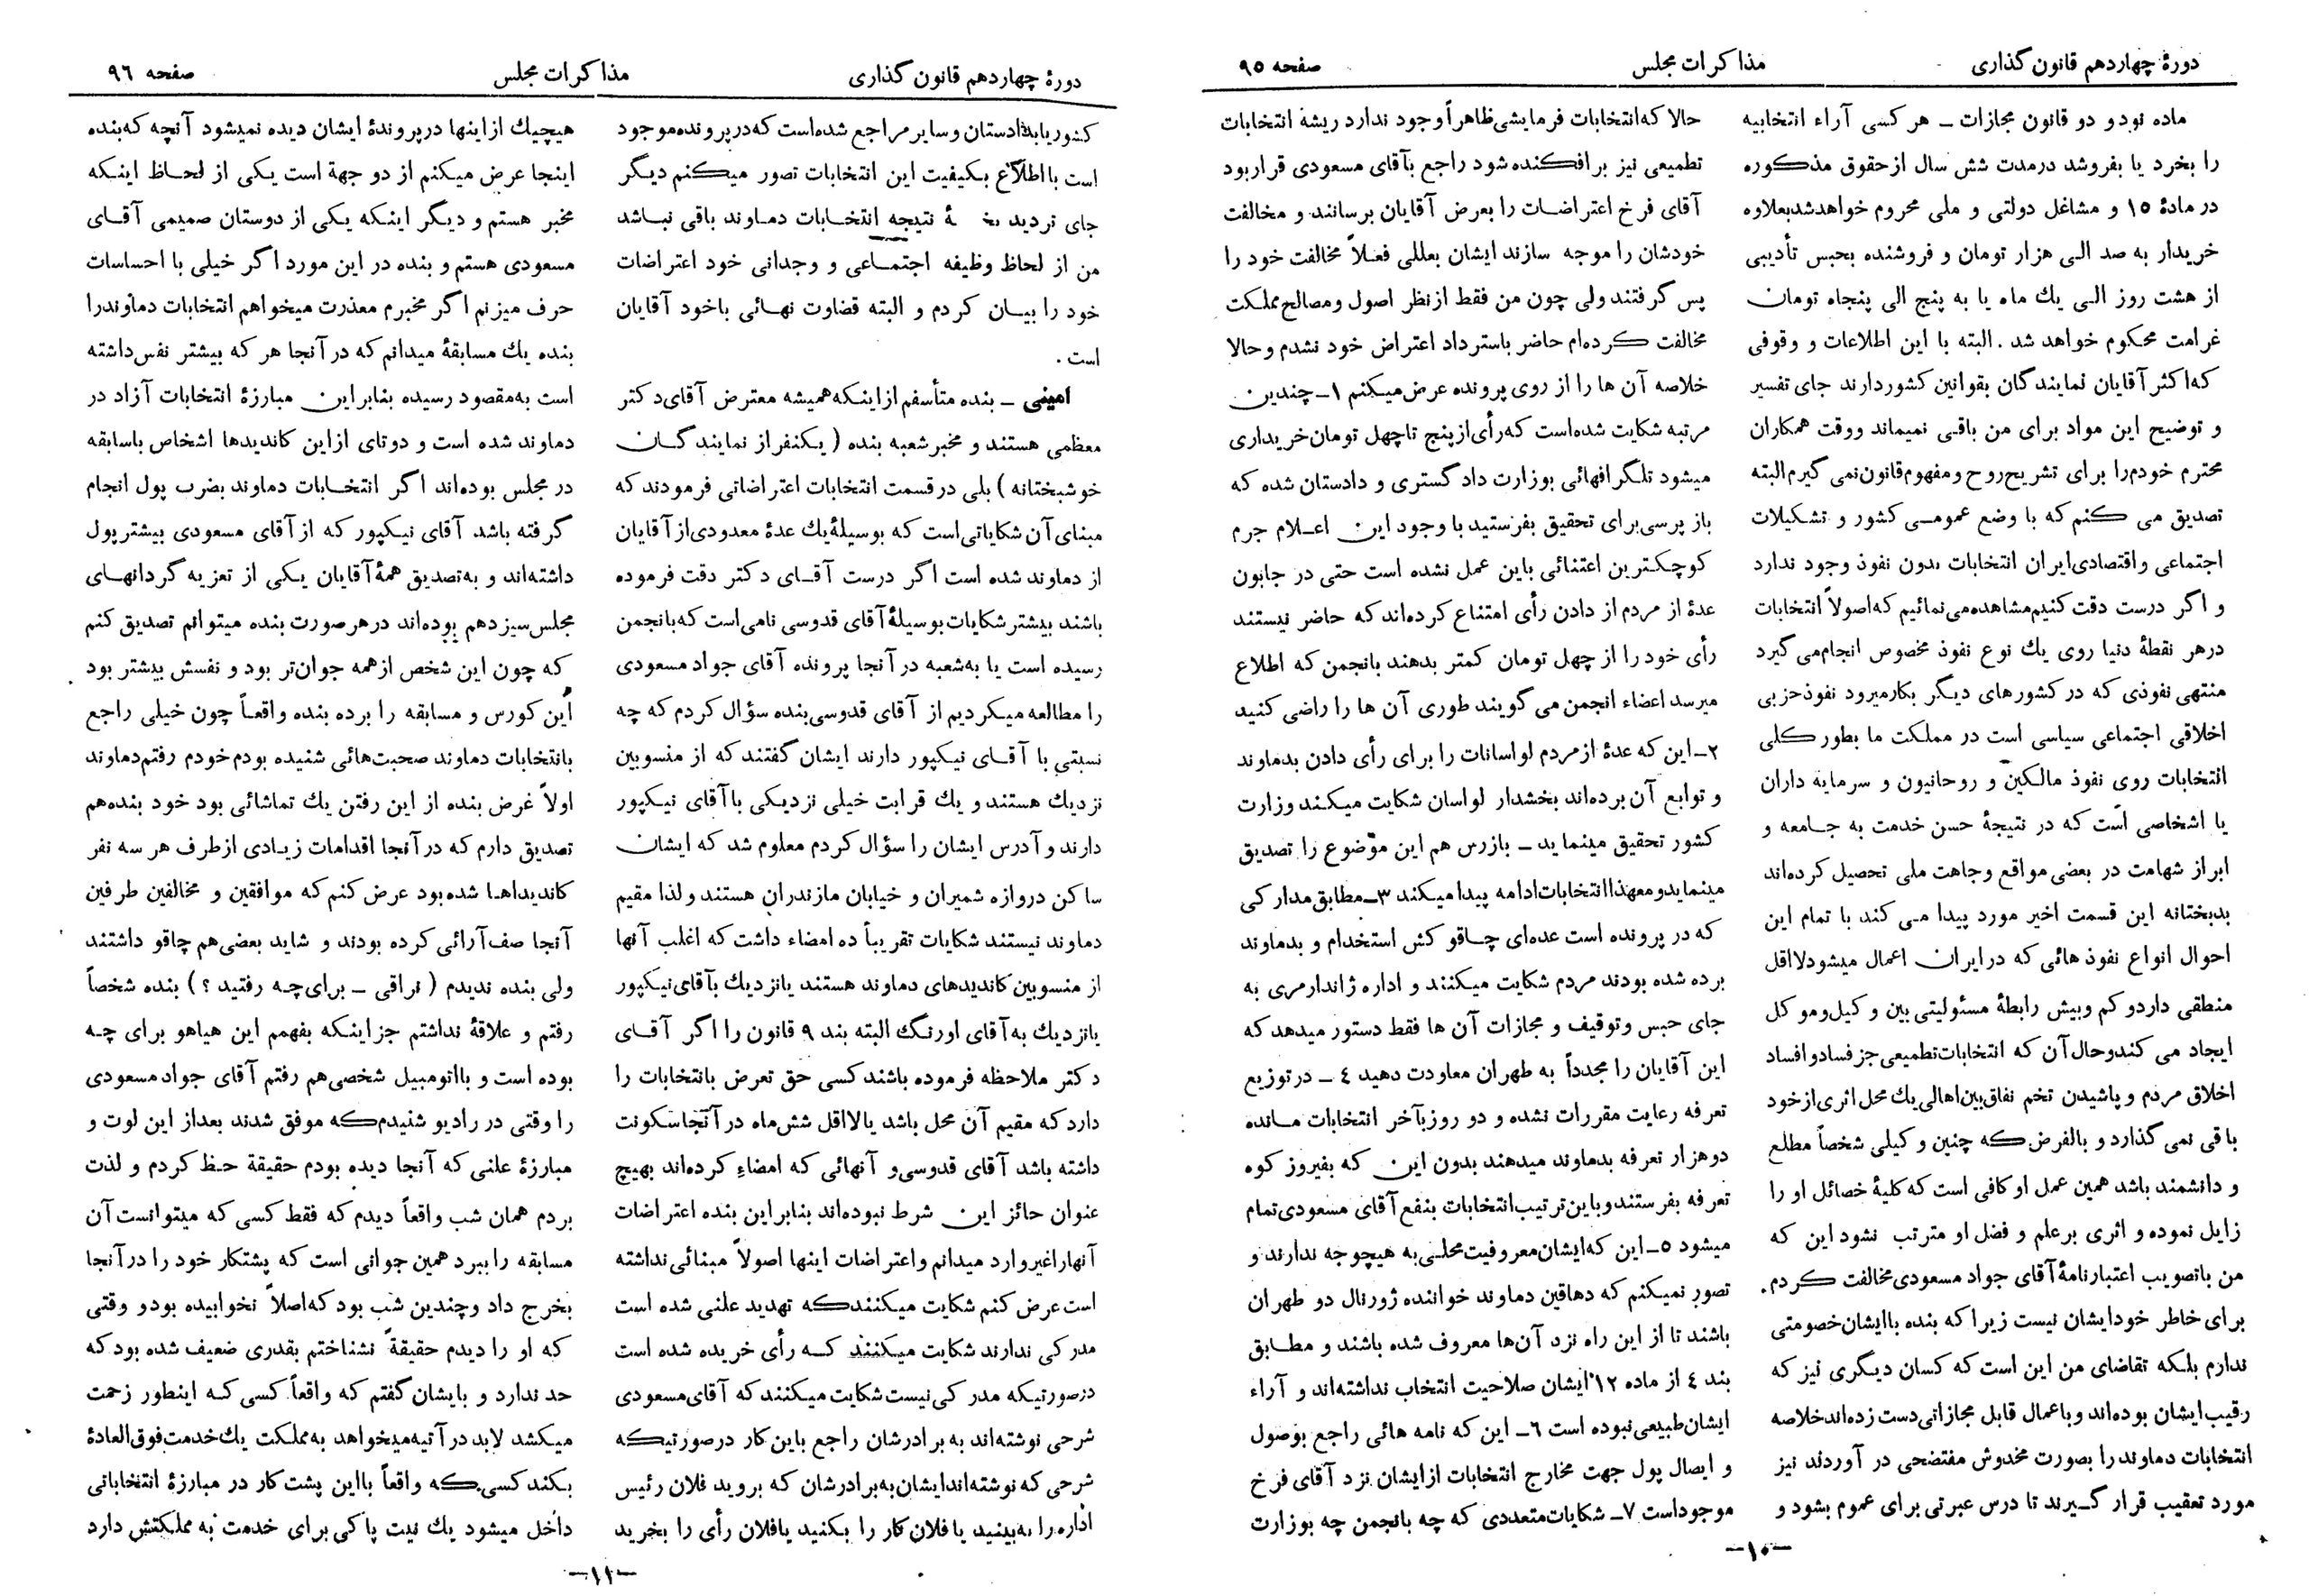 دورهٔ چهاردهم قانون گذاری
مذاکرات مجلس
صفحه ۹۵
ماده نودو دو قانون مجازات ــ هر کسی آراء انتخابیه
را بخرد یا بفروشد درمدت شش سال ازحقوق مذکوره
در مادهٔ ۱۵ و مشاغل دولتی و ملی محروم خواهدشدبعلاوه
خریدار به صد الی هزار تومان و فروشنده بحبس تأدیبی
از هشت روز الی یك ماه یا به پنج الی پنجاه تومان
غرامت محکوم خواهد شد . البته با این اطلاعات و وقوفی
که اکثر آقایان نمایندگان بقوانین کشوردارند جای تفسیر
و توضیح این مواد برای من باقی نمیماند ووقت همکاران
محترم خودم‌را برای تشریح‌روح و مفهوم‌قانون‌نمی گیرم‌البته
تصدیق می کنم که با وضع عمومی کشور و تشکیلات
اجتماعی و اقتصادی‌ایران انتخابات بدون نفوذ وجود ندارد
و اگر درست دقت کنیم‌مشاهده‌می‌نمائیم که‌اصولاً انتخابات
درهر نقطهٔ دنیا روی یك نوع نفوذ مخصوص انجام‌می گیرد
منتهی نفوذی که در کشورهای دیگر بکارمیرود نفوذحزبی
اخلاقی اجتماعی سیاسی است در مملکت ما بطور کلی
انتخابات روی نفوذ مالکین و روحانیون و سرمایه داران
یا اشخاصی است که در نتیجهٔ حسن خدمت به جامعه و
ابراز شهامت در بعضی مواقع وجاهت ملی تحصیل کرده‌اند
بدبختانه این قسمت اخیر مورد پیدا می کند با تمام این
احوال انواع نفوذ هائی که درایران اعمال میشودلااقل
منطقی داردو کم وبیش رابطهٔ مسئولیتی بین و کیل‌وموکل
ایجاد می کندوحال‌آن که انتخابات‌تطمیعی‌جز فسادوافساد
اخلاق مردم و پاشیدن تخم نفاق‌بین‌اهالی‌یك محل اثری‌ازخود
باقی نمی گذارد و بالفرض‌که چنین و کیلی شخصاً مطلع
و دانشمند باشد همین عمل او کافی است که کلیهٔ خصائل او را
زایل نموده و اثری برعلم و فضل او مترتب نشود این که
من باتصویب اعتبارنامهٔ آقای جواد مسعودی‌مخالفت کردم.
برای خاطر خودایشان نیست زیرا که بنده باایشان‌خصومتی
ندارم بلکه تقاضای من این است که کسان دیگری نیز که
رقیب‌ایشان بوده‌اند و باعمال قابل مجازاتی‌دست زده‌اندخلاصه
انتخابات دماوند را بصورت مخدوش مفتضحی در آوردند نیز
مورد تعقیب قرار گیرند تا درس عبرتی برای عموم بشود و
حالا که‌انتخابات فرمایشی‌ظاهراً وجود ندارد ریشه انتخابات
تطمیعی نیز برافکنده شود راجع بآقای مسعودی قراربود
آقای فرخ اعتراضات را بعرض آقایان برسانند و مخالفت
خودشان را موجه سازند ایشان بعللی فعلاً مخالفت خود را
پس گرفتند ولی چون من فقط ازنظر اصول ومصالح‌مملکت
مخالفت کرده‌ام حاضر باسترداد اعتراض خود نشدم و حالا
خلاصه آن ها را از روی پرونده عرض‌میکنم ۱ــ چندین
مرتبه شکایت شده‌است که‌رأی‌ازپنج تاچهل تومان‌خریداری
میشود تلگرافهائی بوزارت دادگستری و دادستان شده که
بازپرسی‌برای تحقیق بفرستید باوجود این اعلام جرم
کوچکترین اعتنائی باین عمل نشده است حتی در جابون
عدهٔ از مردم از دادن رأی امتناع کرده‌اند که حاضر نیستند
رأی خود را از چهل تومان کمتر بدهند بانجمن که اطلاع
میرسد اعضاء انجمن می گویند طوری آن ها را راضی کنید
۲ــ این که عدهٔ ازمردم لواسانات را برای رأی دادن بدماوند
و توابع آن برده‌اند بخشدار لواسان شکایت میکند وزارت
کشور تحقیق مینماید ــ بازرس هم این موضوع را تصدیق
مینمایدومعهذاانتخابات‌ادامه پیدامیکند ۳ــ مطابق‌مدارکی
که در پرونده است عده‌ای چاقو کش استخدام و بدماوند
برده شده بودند مردم شکایت میکنند و اداره ژاندارمری به
جای حبس وتوقیف و مجازات آن ها فقط دستور میدهد که
این آقایان را مجدداً به طهران معاودت دهید ٤ ــ درتوزیع
تعرفه رعایت مقررات نشده و دو روزبآخر انتخابات مانده
دوهزار تعرفه بدماوند میدهند بدون این که بفیروز کوه
تعرفه بفرستند وباین‌ترتیب‌انتخابات بنفع آقای مسعودی‌تمام
میشود ۵ــ این که‌ایشان‌معروفیت‌محلی‌به هیچوجه ندارند و
تصور نمیکنم که دهاقین دماوند خواننده ژورنال دو طهران
باشند تا از این راه نزد آن‌ها معروف شده باشند و مطابق
بند ٤ از ماده ۱۲ ایشان صلاحیت انتخاب نداشته‌اند و آراء
ایشان‌طبیعی‌نبوده است ٦ــ این که نامه هائی راجع بوصول
و ایصال پول جهت مخارج انتخابات ازایشان نزد آقای فرخ
موجوداست ۷ــ شکایات‌متعددی که چه بانجمن چه بوزارت
ــ۱۰ــ
دورهٔ چهاردهم قانون گذاری
مذاکرات مجلس
صفحه ۹٦
کشوریابدادستان وسایرمراجع شده‌است که‌درپرونده‌موجود
است بااطلاع بکیفیت این انتخابات تصور میکنم دیگر
جای تردید نتیجه انتخابات دماوند باقی نباشد
من از لحاظ وظیفه اجتماعی و وجدانی خود اعتراضات
خود را بیان کردم و البته قضاوت نهائی باخود آقایان
است .
امینی ــ بنده متأسفم ازاینکه‌همیشه معترض آقای‌دکتر
معظمی هستند و مخبرشعبه بنده ( یکنفراز نمایندگان
خوشبختانه ) بلی درقسمت انتخابات اعتراضاتی فرمودند که
مبنای آن شکایاتی‌است که بوسیلهٔ‌یك عدهٔ معدودی‌ازآقایان
از دماوند شده است اگر درست آقای دکتر دقت فرموده
باشند بیشترشکایات‌بوسیلهٔ‌آقای قدوسی نامی‌است که‌بانجمن
رسیده است یا به‌شعبه درآنجا پرونده آقای جواد مسعودی
را مطالعه میکردیم از آقای قدوسی‌بنده سؤال کردم که چه
نسبتی با آقای نیکپور دارند ایشان گفتند که از منسوبین
نزدیك هستند و یك قرابت خیلی نزدیکی باآقای نیکپور
دارند و آدرس ایشان را سؤال کردم معلوم شد که ایشان
ساکن دروازه شمیران و خیابان مازندران هستند ولذا مقیم
دماوند نیستند شکایات تقریباً ده امضاء داشت که اغلب آنها
از منسوبین کاندیدهای دماوند هستند یانزدیك بآقای‌نیکپور
یانزدیك به‌آقای اورنگ البته بند ۹ قانون را اگر آقای
دکتر ملاحظه فرموده باشند کسی حق تعرض بانتخابات را
دارد که مقیم آن محل باشد یالااقل شش‌ماه درآنجاسکونت
داشته باشد آقای قدوسی‌و آنهائی که امضاء کرده‌اند بهیچ
عنوان حائز این شرط نبوده‌اند بنابراین بنده اعتراضات
آنهاراغیروارد میدانم واعتراضات اینها اصولاً مبنائی نداشته
است عرض کنم شکایت میکنندکه تهدید علنی شده است
مدرکی ندارند شکایت میکنند که رأی خریده شده است
درصورتیکه مدرکی‌نیست شکایت میکنند که آقای‌مسعودی
شرحی نوشته‌اند به برادرشان راجع باین‌کار درصورتیکه
شرحی که نوشته‌اندایشان‌به‌برادرشان که بروید فلان رئیس
اداره را به‌بینید یافلان کار را بکنید یافلان رأی را بخرید
هیچیك ازاینها درپروندهٔ ایشان دیده نمیشود آنچه که‌بنده
اینجا عرض میکنم از دو جهة است یکی از لحاظ اینکه
مخبر هستم و دیگر اینکه یکی از دوستان صمیمی آقای
مسعودی هستم و بنده در این مورد اگر خیلی با احساسات
حرف میزنم اگر مخبرم معذرت میخواهم انتخابات دماوندرا
بنده یك مسابقهٔ میدانم که در آنجا هر که بیشتر نفس‌داشته
است به‌مقصود رسیده بنابراین مبارزهٔ انتخابات آزاد در
دماوند شده است و دوتای ازاین کاندیدها اشخاص باسابقه
در مجلس بوده‌اند اگر انتخابات دماوند بضرب پول انجام
گرفته باشد. آقای نیکپور که ازآقای مسعودی بیشترپول
داشته‌اند و به‌تصدیق همهٔ آقایان یکی از تعزیه گردانهای
مجلس‌سیزدهم بوده‌اند درهرصورت بنده میتوانم تصدیق کنم
که چون این شخص ازهمه جوان‌تر بود و نفسش بیشتر بود
این کورس و مسابقه را برده بنده واقعاً چون خیلی راجع
بانتخابات دماوند صحبت‌هائی شنیده بودم‌خودم رفتم‌دماوند
اولاً غرض بنده از این رفتن یك تماشائی بود خود بنده‌هم
تصدیق دارم که درآنجا اقدامات زیادی ازطرف هر سه نفر
کاندیداها شده‌بود عرض کنم که موافقین و مخالفین طرفین
آنجا صف‌آرائی کرده بودند و شاید بعضی‌هم چاقو داشتند
ولی بنده ندیدم ( نراقی ــ برای‌چه رفتید ؟ ) بنده شخصاً
رفتم و علاقهٔ نداشتم جزاینکه بفهمم این هیاهو برای چه
بوده است و بااتومبیل شخصی‌هم رفتم آقای جواد مسعودی
را وقتی در رادیو شنیدم‌که موفق شدند بعداز این لوت و
مبارزهٔ علنی که آنجا دیده بودم حقیقة حظ کردم و لذت
بردم همان شب واقعاً دیدم که فقط کسی که میتوانست آن
مسابقه را ببرد همین جوانی است که پشتکار خود را درآنجا
بخرج داد و چندین شب بود که‌اصلاً نخوابیده بودو وقتی
که او را دیدم حقیقةً نشناختم بقدری ضعیف شده بود که
حد ندارد و بایشان گفتم که واقعاً کسی که اینطور زحمت
میکشد لابد درآتیه‌میخواهد به‌مملکت یك‌خدمت‌فوق‌العادهٔ
بکند کسی‌که واقعاً بااین پشت کار در مبارزهٔ انتخاباتی
داخل میشود یك نیت پاکی برای خدمت به مملکتش دارد
ــ۱۱ــ